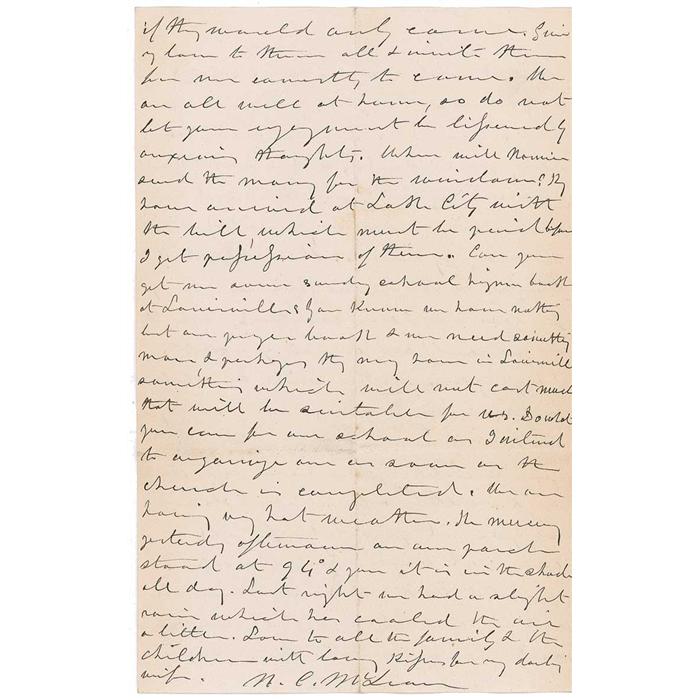 if they would only come. Give
my love to them all & invite them
for me earnestly to come. We
are all well at home, so do not
let your enjoyment be lessened by
anxious thoughts. When will Nannie
send the money for the windows? They
have arrived at Lake City with
the bill, which must be paid before
I get possession of them. Can you
get me some sunday school hymn books
at Louisville? You know we have nothing
but our prayer book & we need something
more, & perhaps they may have in Louisville
something which will not cost much
that will be suitable for us. Do what
you can for our school as I intend
to organize one as soon as the
church is completed. We are
having very hot weather. The mercury
yesterday afternoon on our porch
stood at 94° & you it is in the shade
all day. Last night we had a slight
rain which has cooled the air
a little. Love to all the family & the
children with loving kisses for my darling
wife. N. C. McLean